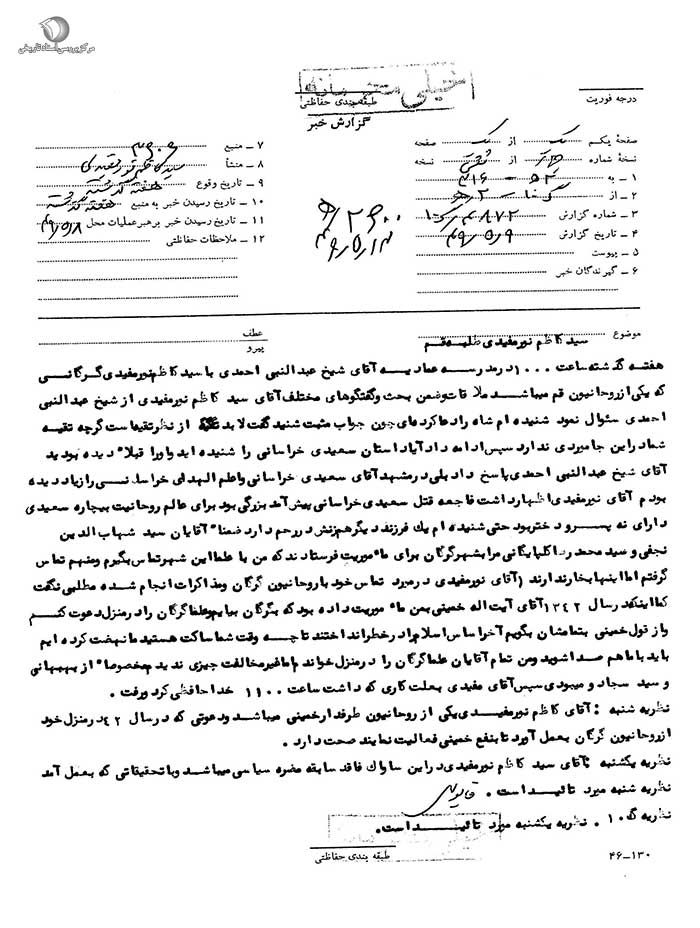 مرکز بررسی اسناد تاریخی
خیلی محرمانه
درجه فوریت
طبقه بندی حفاظتی
گزارش خبر
صفحهٔ یکم یک از یک صفحه
نسخهٔ شماره از نسخه
۱ ـ به ۳۱۶
۲ ـ از
۳ ـ شماره گزارش ۴۸۷۲
۴ ـ تاریخ گزارش ۴۹/۵/۹
۵ ـ پیوست
۶ ـ گیرندگان خبر
۷ ـ منبع
۸ ـ منشأ سید کاظم نورمفیدی
۹ ـ تاریخ وقوع هفته گذشته
۱۰ ـ تاریخ رسیدن خبر به منبع هفته گذشته
۱۱ ـ تاریخ رسیدن خبر برهبر عملیات محل ۴۹/۵/۸
۱۲ ـ ملاحظات حفاظتی
۵/۲۶۰۰
۴۹/۵/۱۳
موضوع سید کاظم نورمفیدی طلبه قم
عطف
پیرو
هفته گذشته ساعت ۱۰۰۰ درمدرسه عمادیه آقای شیخ عبدالنبی احمدی با سید کاظم نورمفیدی گرگانی
که یکی از روحانیون قم میباشد ملاقات وضمن بحث وگفتگوهای مختلف آقای سید کاظم نورمفیدی از شیخ عبدالنبی
احمدی سئوال نمود شنیده ام شاه را دعا کرده ای چون جواب مثبت شنید گفت لابد از نظر تقیه است گرچه تقیه
شما در این جا موردی ندارد سپس ادامه داد آیا داستان سعیدی خراسانی را شنیده اید و او را قبلا دیده بودید
آقای شیخ عبدالنبی احمدی پاسخ داد بلی در مشهد آقای سعیدی خراسانی و علم الهدای خراسانی را زیاد دیده
بودم آقای نورمفیدی اظهار داشت فاجعه قتل سعیدی خراسانی پیش آمد بزرگی بود برای عالم روحانیت بیچاره سعیدی
دارای نه پسر و دختر بود حتی شنیده ام یک فرزند دیگر هم زنش در رحم دارد ضمنا آقایان سید شهاب الدین
نجفی و سید محمد رضا گلپایگانی مرا بشهر گرگان برای ماموریت فرستادند که من با علما این شهر تماس بگیرم ومنهم تماس
گرفتم اما اینها بخار ندارند (آقای نورمفیدی درمورد تماس خود با روحانیون گرگان ومذاکرات انجام شده مطلبی نگفت
کما اینکه در سال ۱۳۴۲ آقای آیت اله خمینی بمن ماموریت داده بود که بگرگان بیایم وعلما گرگان را در منزل دعوت کنم
و از قول خمینی بتمامشان بگویم آخر اساس اسلام را در خطر انداختند تا چه وقت شما ساکت هستید ما نهضت کرده ایم
باید با ما هم صدا شوید ومن تمام آقایان علما گرگان را در منزل خواندم اما غیر مخالفت چیزی ندیدم مخصوصا از بهبهانی
و سید سجاد و میبودی سپس آقای مفیدی بعلت کاری که داشت ساعت ۱۱۰۰ خدا حافظی کرد و رفت .
نظریه شنبه : آقای کاظم نورمفیدی یکی از روحانیون طرفدار خمینی میباشد ودعوتی که در سال ۴۲ در منزل خود
از روحانیون گرگان بعمل آورد تا بنفع خمینی فعالیت نمایند صحت دارد .
نظریه یکشنبه : آقای سید کاظم نورمفیدی در این ساواک فاقد سابقه مضره سیاسی میباشد و با تحقیقاتی که بعمل آمد
نظریه شنبه مورد تائید است .
نظریه گ ۱۰ . نظریه یکشنبه مورد تائید است .
طبقه بندی حفاظتی
۴۶ـ۱۳۰